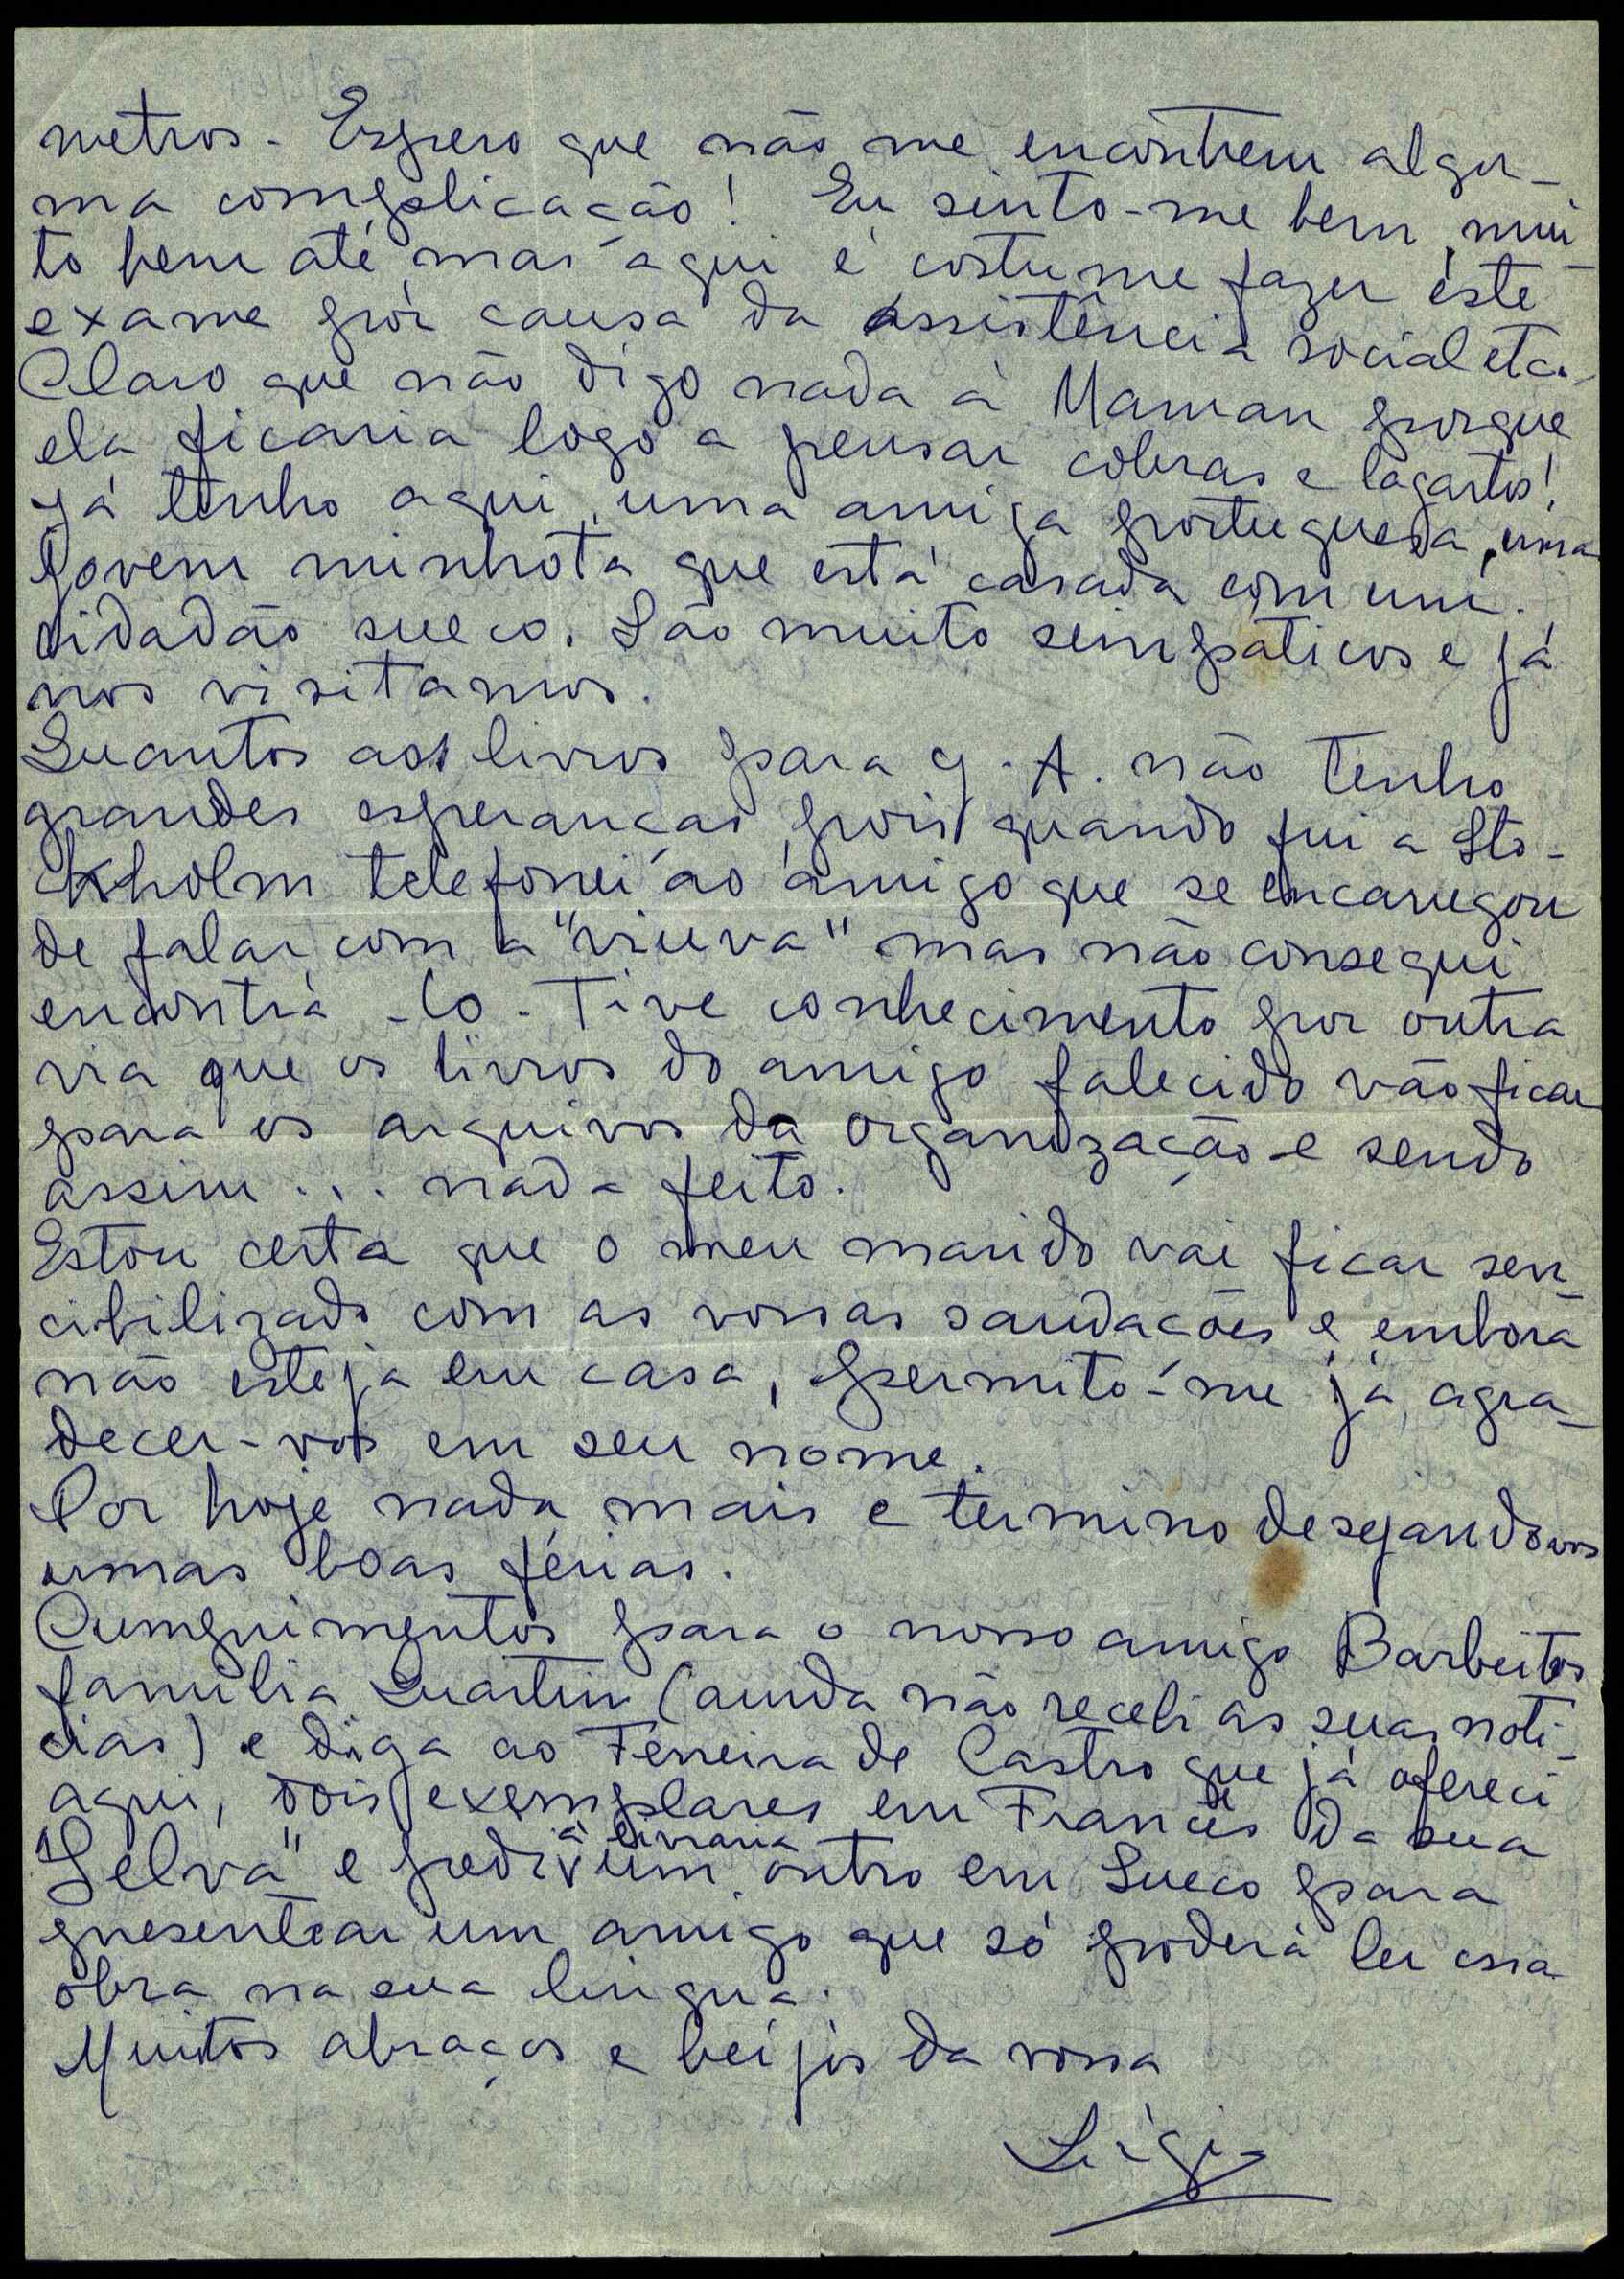 metros. Espero que não me encontrem algu-
ma complicação! Eu sinto-me bem, mui-
to bem até mas aqui é costume fazer êste
exame por causa da assistência social etc.
Claro que não digo nada à Maman porque
ela ficaria logo a pensar cobras e lagartos!
Já tenho aqui uma amiga portuguesa, uma
jovem minhota que está casada com um
cidadão sueco. São muito simpáticos e já
nos visitamos.
Quantos aos livros para g. A. não tenho
grandes esperanças pois quando fui a Sto-
ckholm telefonei ao amigo que se encarregou
de falar com a "viuva" mas não consegui
encontrá-lo. Tive conhecimento por outra
via que os livros do amigo falecido vão ficar
para os arquivos da organização e sendo
assim... nada feito.
Estou certa que o meu marido vai ficar sen-
cibilizado com as vossas saudações e, embora
não esteja em casa, permito-me já agra-
decer-vos em seu nome.
Por hoje nada mais e termino desejando vos
umas boas férias.
Cumprimentos para o nosso amigo Barbeitos
família Quartin (ainda não recebi as suas notí-
cias) e diga ao Ferreira de Castro que já ofereci
aqui, dois exemplares em Francês da sua
"Selva" e pedi à livraria um outro em Sueco para
presentear um amigo que só poderá ler essa
obra na sua lingua.
Muitos abraços e beijos da vossa
Lígia